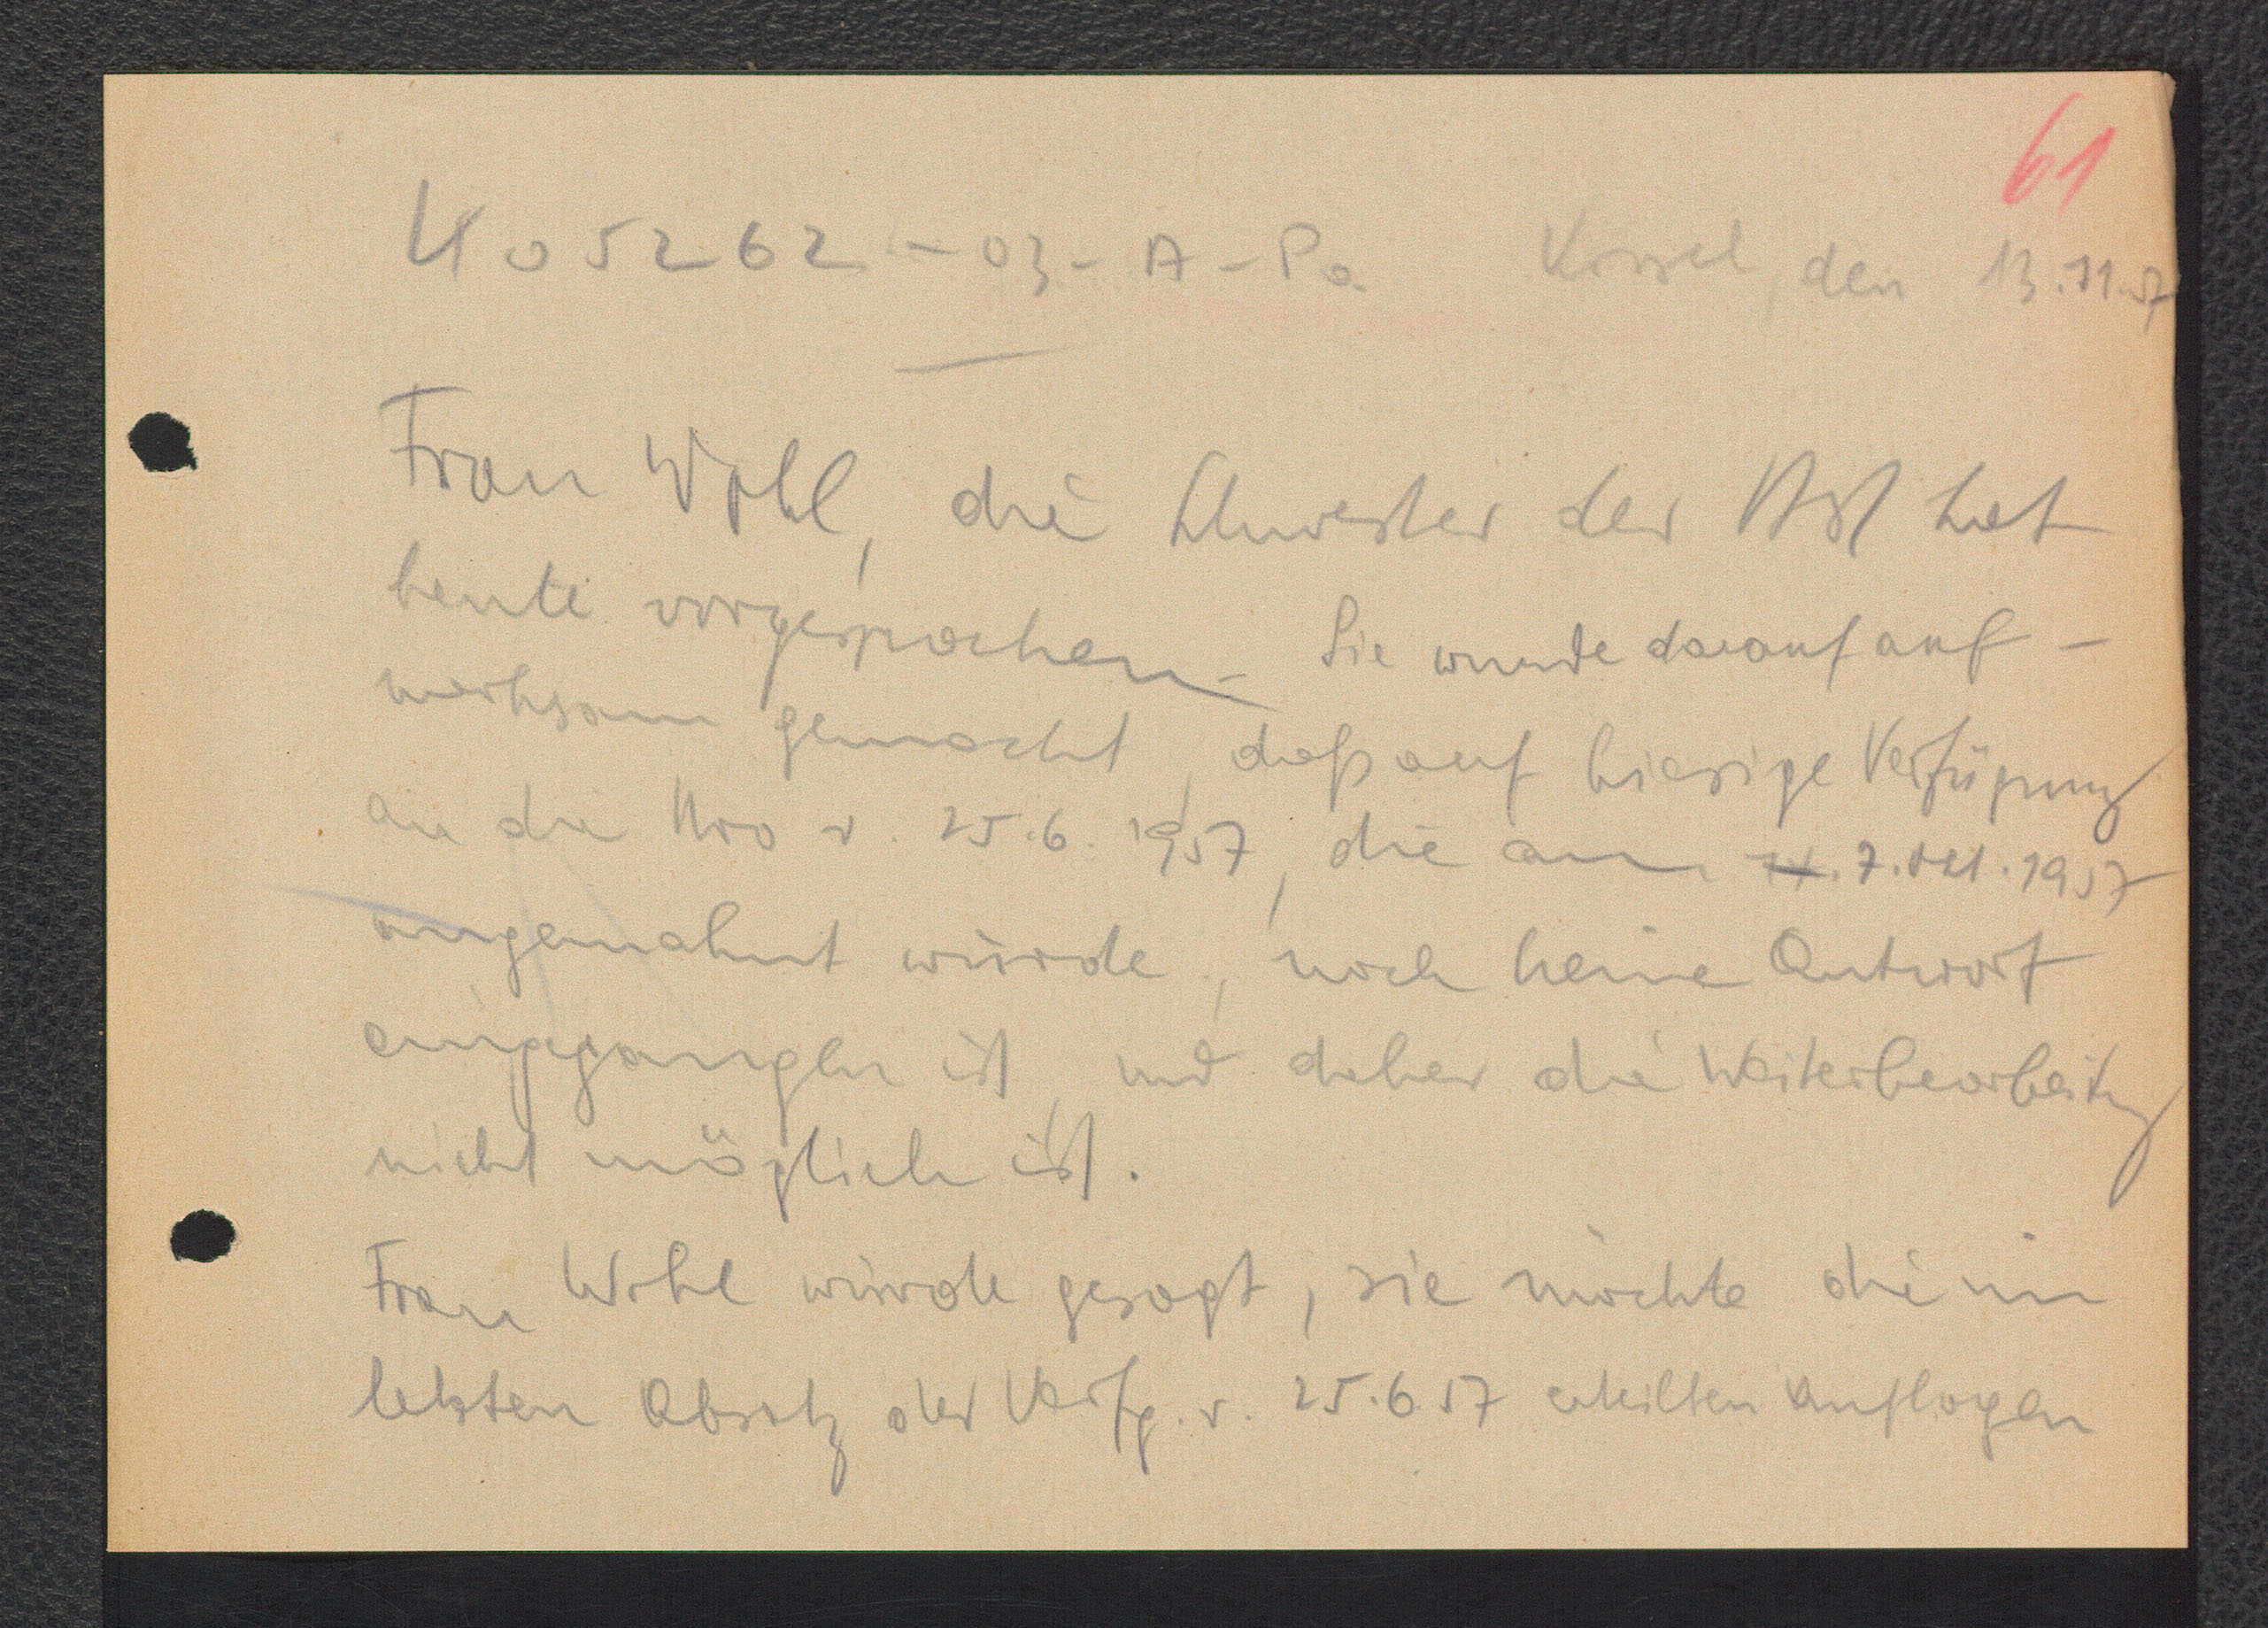 61
U 05262 - 03 - A - Pa Kassel, den 13.11.57
Frau Wohl, die Schwester der Ast hat
heute vorgesprochen. Sie wurde darauf auf-
merksam gemacht, daß auf hiesige Verfügung
an die Uro v. 25.6.1957, die am 7. Okt. 1957
angemahnt wurde, noch keine Antwort
eingegangen ist und daher die Weiterbearbeitung
nicht möglich ist.
Frau Wohl wurde gesagt, sie möchte die im
letzten Absatz der Verfg. v. 25.6.57 erteilten Auflagen